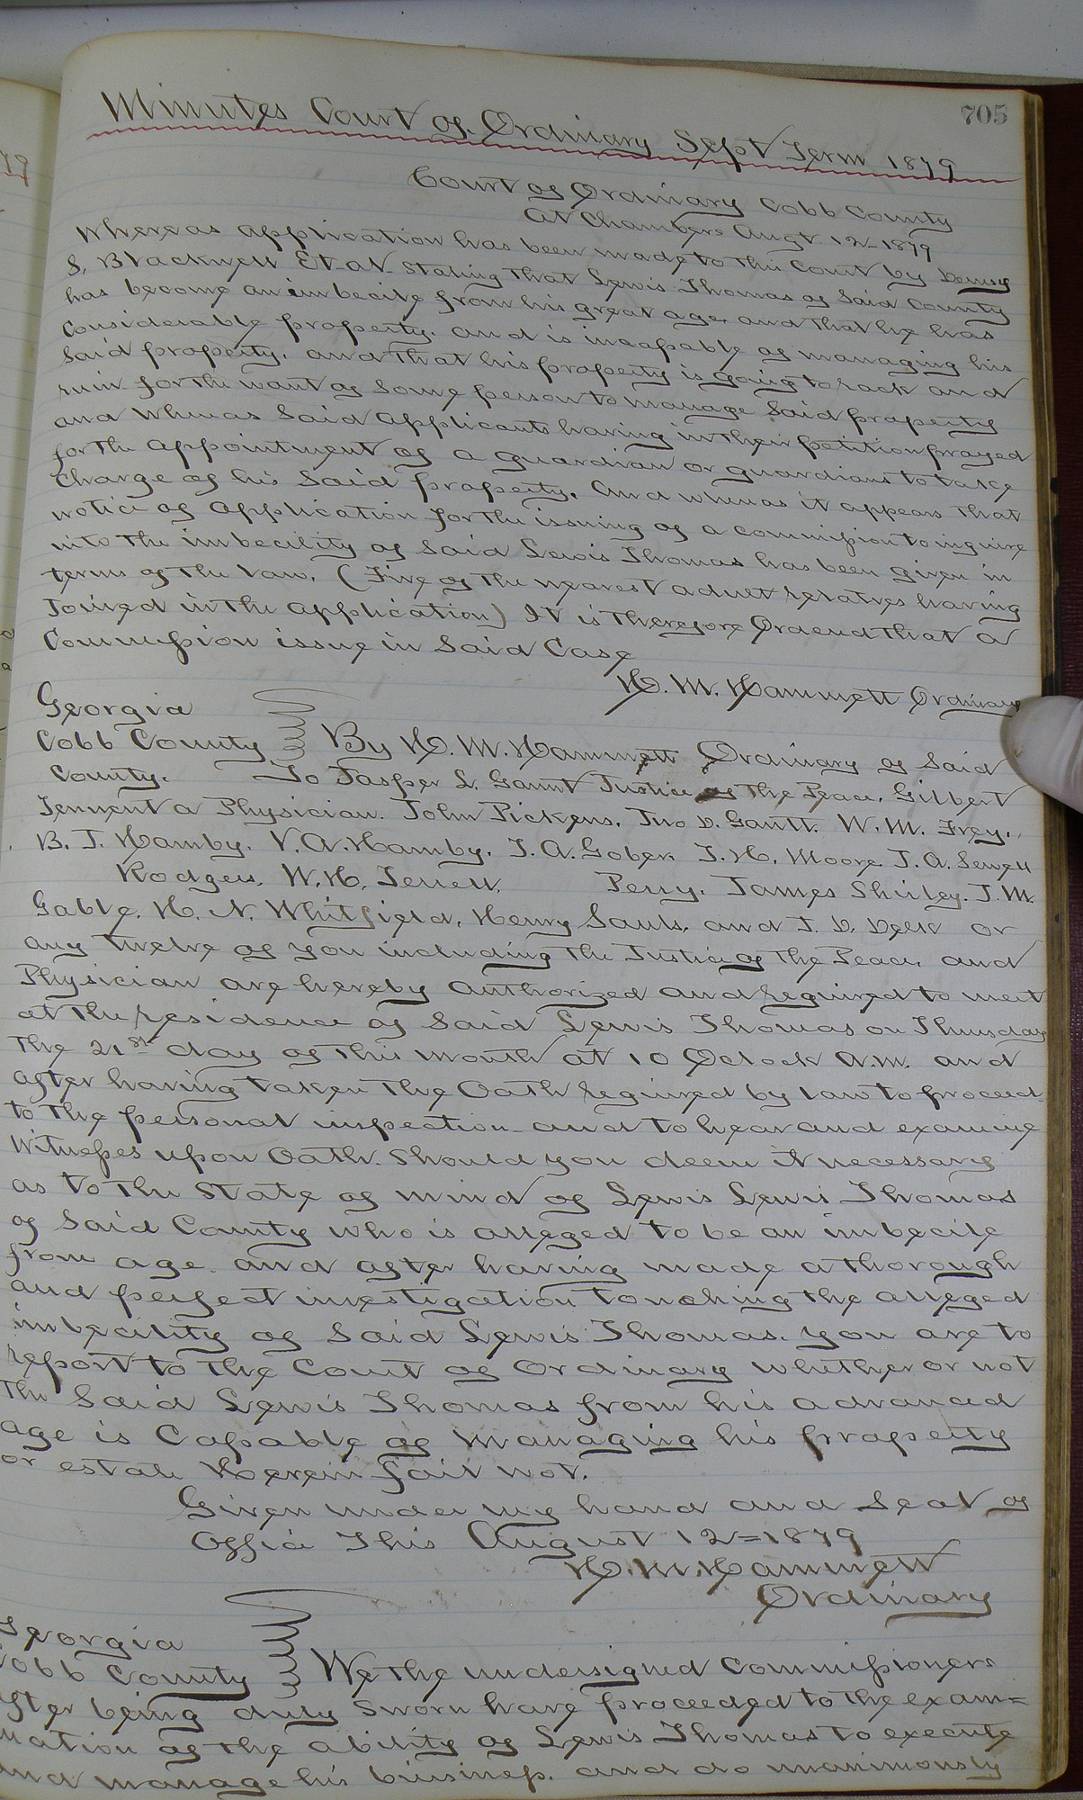 705
Minutes Court of Ordinary Sept Term 1879
Court of Ordinary Cobb County
At Chambers Augt 12 - 1879
Whereas application has been made to this Court by
S. Blackwell Et al stating that Lewis Thomas of said County
has become an imbecile from his great age and that he has
Considerable property. and is incapable of managing his
said property. and that his property is going to rack and
ruin for the want of some person to manage said property
and whereas said applicants having in their petition prayed
for the appointment of a guardian or guardians to take
Charge of his said property. And whereas it appears that
notice of application for the issuing of a commission to inquire
into the imbecility of said Lewis Thomas has been given in
terms of the law. (Five of the nearest adult relatives having
Joined in the application) It is therefore Ordered that a
Commission issue in said Case
H. M. Hammett Ordinary
Georgia
Cobb County By H. M. Hammett Ordinary of said
County. To Jasper L. Gantt Justice of the Peace, Gilbert
Tennent a Physician. John Pickens, Jno D. Gantt. W. M. Frey.
B. T. Hamby. V. A. Hamby. J. A. Gober. J. H. Moore. J. A. Sewell
Rodgers. W. H. Terrell. Perry. James Shirley. J. M.
Gable. H. N. Whitfield, Henry Sauls. and J. D. Delk or
any twelve of you including the Justice of the Peace, and
Physician are hereby authorized and required to meet
at the residence of said Lewis Thomas on Thursday
the 21st day of this month at 10 Oclock A.M. and
after having taken the Oath required by law to proceed
to the personal inspection and to hear and examine
Witnesses upon Oath. should you deem it necessary
as to the state of mind of Lewis Lewis Thomas
of said County who is alleged to be an imbecile
from age. and after having made a thorough
and perfect investigation touching the alleged
imbecility of said Lewis Thomas. you are to
report to the Court of Ordinary whether or not
the said Lewis Thomas from his advanced
age is Capable of managing his property
or estate Herein fail not.
Given under my hand and seal of
Office This August 12 = 1879
H. M. Hammett
Ordinary
Georgia
Cobb County We the undersigned Commissioners
after being duly sworn have proceeded to the exam=
nation of the ability of Lewis Thomas to execute
and manage his business. and do unanimously